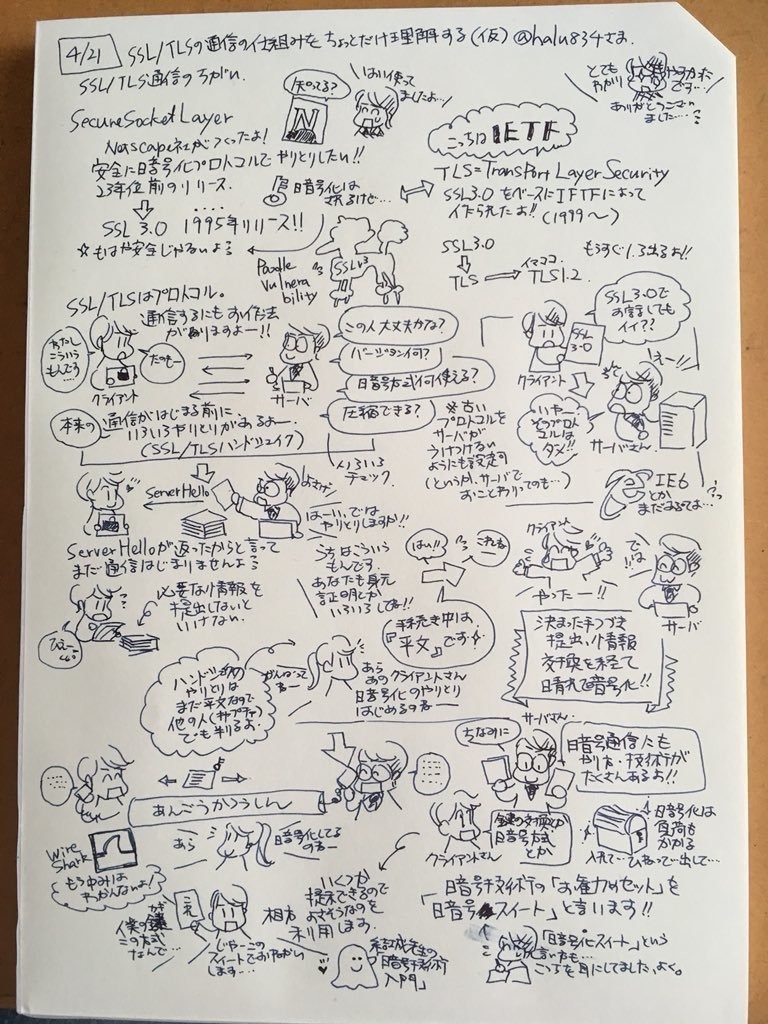 4/21 SSL/TLSの通信の仕組みをちょっとだけ理解する(仮) @halu834さま
SSL/TLS通信のちがい
知ってる?
N
はい使ってましたよ…
とてもわかりやすかったです…
ありがとうございました…
SecureSocketLayer
Netscape社がつくったよ!
安全に暗号化プロトコルでやりとりしたい!!
23年位前のリリース
SSL 3.0 1995年リリース!!
☆もはや安全じゃないよ
暗号化は
Poodle
Vulnera
bility
SSLv3
こっちはIETF
TLS=Transport Layer Security
SSL3.0をベースにIFTFによって
作られたよ!! (1999〜)
SSL3.0
TLS
イマココ
TLS1.2.
もうすぐ1.3出るよ!!
SSL/TLSはプロトコル。
通信するにもお作法
がありますよー!!
わたし
こういう
もんです…
たのもー
クライアント
サーバ
この人大丈夫かな?
バージョン何?
暗号方式何使える?
圧縮できる?
いろいろ
チェック
SSL3.0で
お話してもイイ??
SSL
3.0
クライアント
えー!!
いやー
そのプロト
コルは
ダメ!!
サーバさん
※古い
プロトコルを
サーバが
うけつけない
ようにも設定可
(というか、サーバで
おことわりってのも…)
IE6
とか
まだあるでよ…
本来の
通信がはじまる前に
いろいろやりとりがあるよー
(SSL/TLSハンドシェイク)
ServerHello
はーい、では
やりとりしますか!!
ServerHelloが返ったからと言って
まだ通信はじまりませんよ
必要な情報を
提出しないと
いけない。
ひえー
うちはこういう
もんです。
あなたも身元
証明しとか
いろいろしてね!!
はい!!
これもー
手続き中は
『平文』です!
クライアント
やったー!!
では!!
サーバ
決まった手つづき
提出、情報
交換を経て
晴れて暗号化!!
ハンドシェイクの
やりとりは
まだ平文なので
他の人(キャプチャ)
でも判るよ。
がんばってるー
あら
あのクライアントさん
暗号化のやりとり
はじめるのねー
あんごうかつうしん
Wire
Shark
もう中みは
わっかんないよ!
あら
暗号化してる
のねー
サーバさん
ちなみに
暗号通信にも
やり方・技術が
たくさんあるよ!!
鍵の交換とか
暗号方式
とか
クライアントさん
暗号化は
負荷も
かかる
入れて…ひねって…出して…
いくつか
提示できるので
よさそうなのを
相方
利用します。
この方式
なんで…
じゃーこの
スイートでおねがい
します…
結城先生の
「暗号技術
入門」
暗号技術の「お雇力のセット」を
「暗号スイート」と言います!!
「暗号化スイート」という
言い方も…
こっちを耳にしてました、よく。